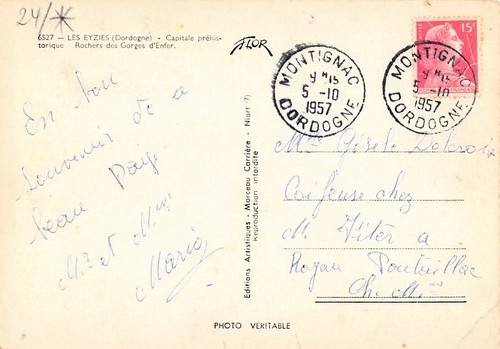 24/*
6527 - LES EYZIES (Dordogne) - Capitale préhis-
torique Rochers des Gorges d'Enfer.
FLOR
15F
MONTIGNAC
9 H 15
5 - 10
1957
DORDOGNE
MONTIGNAC
9 H 15
5 - 10
1957
DORDOGNE
En bon
souvenir de ce
beau Pays
Mr et Mme
Mario
Editions Artistiques - Marceau Carrière - Niort
Reproduction interdite
Mlle Gisèle
Coiffeuse chez
M. Viter a
Royan Pontaillac
Ch. Mme
PHOTO VERITABLE